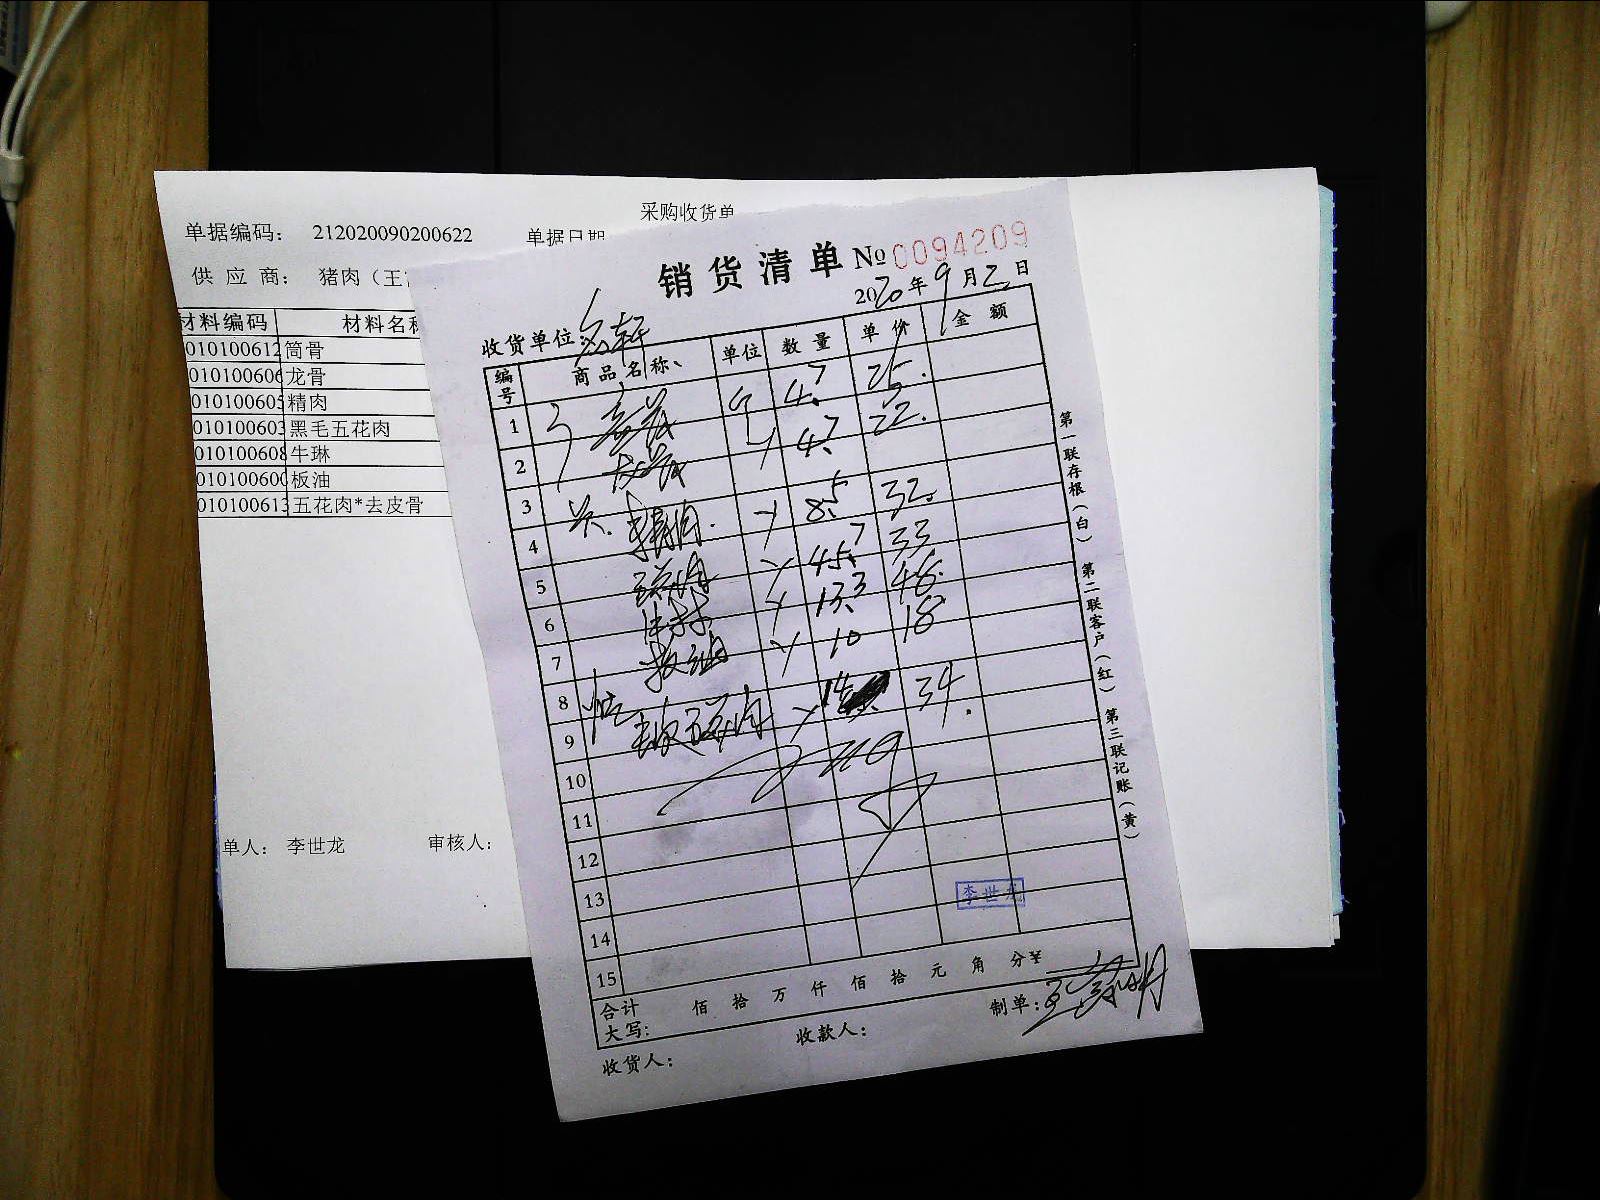 采购收货单
单据编码： 212020090200622 单据日期
供 应 商： 猪肉（王
材料编码 材料名称
010100612 筒骨
010100606 龙骨
010100605 精肉
010100603 黑毛五花肉
010100608 牛琳
010100600 板油
010100613 五花肉*去皮骨
单人： 李世龙 审核人：
销货清单 № 0094209
2020年9月2日
收货单位：名轩
编号 商品名称 单位 数量 单价 金额
1 4.7 25.
2 4.7 22.
3 8.5 32.
4 精肉 45.7 33
5 五花肉 13.3 48.
6 牛林 10 18
7 板油
8 14 34.
9 去皮五花肉
10
11
12
13
14
15
李世龙
合计大写： 佰 拾 万 仟 佰 拾 元 角 分 ¥
收货人： 收款人： 制单：
第一联存根（白） 第二联客户（红） 第三联记账（黄）